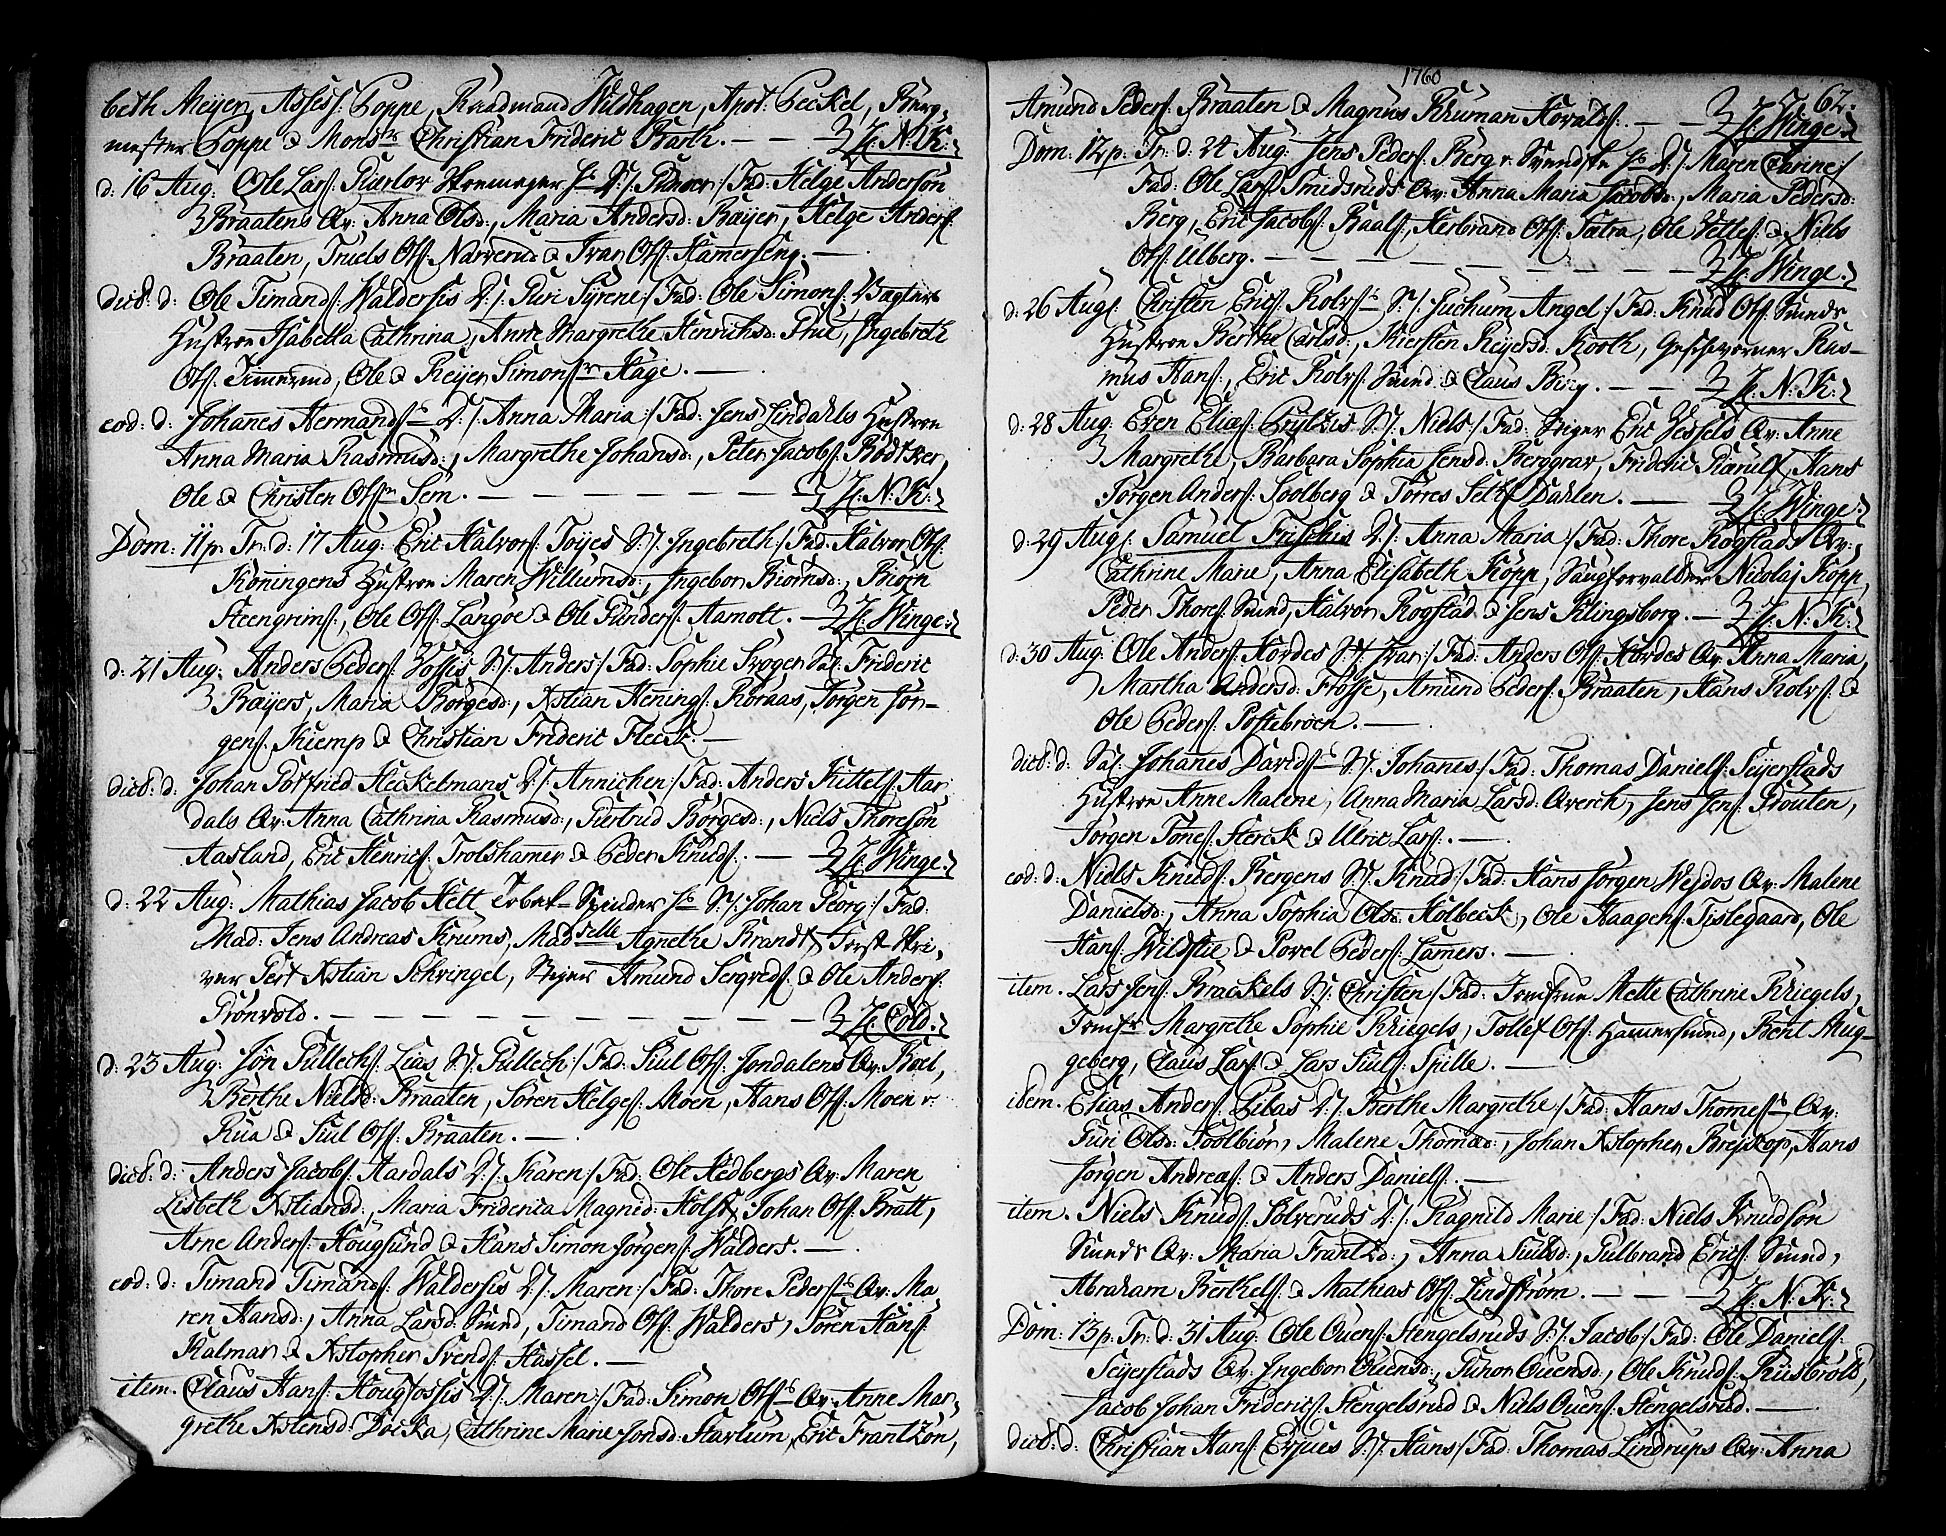 beth Meyer, Assess: Poppe, Raadmand Wildhagen, Apot: Peckel, Burg-
mester Poppe & Monsr Christian Frideric Barth. — — H: N: K:
d: 16 Aug: Ole Lars: Skoemager D:/ /: Fad: Helge Anderson
Braatens Qv: Anna Olsd:, Maria Andersd: Bayer, Helge Anders:
Braaten, Truels Ols: Narverud & Ivar Ols: Hamerseng. —
dict: d: Ole Simand: Waldersis D:/ Guri Syrene /: Fad: Ole Simons: Vagters
Hustroe Isabella Cathrina, Anne Margrethe Henrichsd: , Ingebreth
Ols: Timerud, Ole & Reyer Simons: Hage. —
eod: d: Johanes Hermands: D:/ Anna Maria /: Fad: Jens Lindahls Hustroe
Anna Maria Rasmusd:, Margrethe Johansd:, Peter Jacobs: Bødtker,
Ole & Christen Ols: Sem. — — — — — — H: N: K:
Dom: 11 p: Tr: d: 17 Aug: Eric Halvors: Toyes S:/ Ingebreth /: Fad: Halvor Ols:
Køningens Hustroe Maren Willumsd:, Ingebor Biørnsd:, Biørn
Steengrims:, Ole Ols: Langøe & Ole Gunders: Aamott. — H: Winge
d: 21 Aug: Anders Peders: Fossis S:/ Anders /: Fad: Sophie Frideric
Bayers, Maria Børgesd:, Xstian Hening: Roraas, Jørgen Jør-
gens: Kiemp & Christian Frideric Fleck. —
dict: d: Johan Gotfried Heckelmans D:/ Annichen /: Fad: Anders Kittels: Aar-
dals Qv: Anna Cathrina Rasmusd:, Giertrud Børgesd:, Niels Thoreson
Aasland, Eric Henrics: Trolshamer & Peder Knuds:. — H: Winge
d: 22 Aug: Mathias Jacob Hett Tobak-Spinder S:/ Johan Georg /: Fad:
Mad: Jens Andreas Krums, Madselle Agnethe Brandt, Forst-Skri-
ver Gert Xstian Schringel, Steyer Amund & Ole Anders:
Grønvold. — — — — — — — — H: Cold
d: 23 Aug: Jøn Gullechs: Lias S:/ Gullech /: Fad: Siul Ols: Jondalens Qv: Boel,
Berthe Nielsd: Braaten, Søren Helges: Moen, Hans Ols: Moen v:
Rua & Siul Ols: Braaten. —
dict: d: Anders Jacobs: Aardals D:/ Karen /: Fad: Ole Hedbergs Qv: Maren
Lisbeth Xstiansd:, Maria Friderica Magned: Holst, Johan Ols: Bratt,
Arne Anders: Hougsund & Hans Simon Jørgens: Walders. —
eod: d: Timand Timands: Waldersis D:/ Maren /: Fad: Thore Peders: Qv: Ma-
ren Hansd:, Anna Larsd: Sund, Timand Ols: Walders, Søren Hans:
Kalmar & Xstopher Svends: Hassel. —
item. Claus Hans: Hougfossis D:/ Maren /: Fad: Simon Ols: Qv: Anne Mar-
grethe Xstensd: Docka, Cathrine Marie Jonsd: Harlum, Eric Frantzøn,
1760
62.
Amund Peders: Braaten & Magnus Kruman Horalds:. — — H: Winge
Dom: 12 p: Tr: d: 24 Aug: Jens Peders: Berg v: Svendste D:/ Maren Carine /:
Fad: Ole Lars: Smedsruds Qv: Anna Maria Jacobsd:, Maria Pedersd:
Berg, Eric Jacobs: Baals, Herbrand Ols: Sætra, Ole Vetles: & Niels
Ols: Ulberg. — — — — — — — H: Winge
d: 26 Aug: Christen Erics: Rolvs: S:/ Juchum Angel /: Fad: Knud Ols: Sunds
Hustroe Berthe Carlsd:, Kiersten Reyersd: Korth, Geschworner Ras-
mus Hans:, Eric Rolvs: Sund & Claus Bing. — — H: N: K:
d: 28 Aug: Even Elias: Prytzis S:/ Niels /: Fad: Steyer Eric Jesfelds Qv: Anne
Margrethe, Barbara Sophia Jensd: Berggrav, Frideric Gierulf, Hans
Jørgen Anders: Soolberg & Torres Dahlen. — H: Winge
d: 29 Aug: Samuel Frischis D:/ Anna Maria /: Fad: Thore Rogstads Qv:
Cathrine Marie, Anna Elisabeth Kopp, Saugforvalter Nicolaj Kopp,
Peder Thores: Sund, Halvor Rogstad & Jens Klingsborg. — H: N: K:
d: 30 Aug: Ole Anders: Hørdes S:/ Ivar /: Fad: Anders Ols: Hørdes Qv: Anna Maria,
Martha Andersd: Frosse, Amund Peders: Braaten, Hans Rolvs: &
Ole Peders: Postebroen. —
dict: d: Sal: Johanes Davids: S:/ Johanes /: Fad: Thomas Daniels: Seyerstads
Hustroe Anne Malene, Anna Maria Larsd: Qverck, Jens Jens: Prouten,
Jørgen Tønes: Sterck & Ulric Lars:. —
eod: d: Niels Knuds: Bergens S:/ Knud /: Fad: Hans Jørgen Wejdos Qv: Malene
Danielsd:, Anna Sophia Olsd: Holbeck, Ole Haagens: Tislegaard, Ole
Hans: Wildstie & Povel Peders: Lamers. —
item. Lars Jens: Brackels S:/ Christen /: Fad: Jomfrue Mette Cathrine Kriegels,
Jomfr Margrethe Sophie Kriegels, Tollef Ols: Hamersund, Bent Mug-
geberg, Claus Lars: & Lars Siuls: Spille. —
item. Elias Anders: Pilas D:/ Berthe Margrethe /: Fad: Hans Thomes: Qv:
Guri Olsd: Soolbiør, Malene Thomæd:, Johan Xstopher Breykop, Hans
Jørgen Andreas: & Anders Daniels:. —
item. Niels Knuds: Sølveruds D:/ Ragnild Marie /: Fad: Niels Knudsøn
Sunds Qv: Maria Frantzd:, Anna Siulsd:, Gulbrand Erics: Sund,
Abraham Berthels: & Mathias Ols: Lindstrøm. — — H: N: K:
Dom: 13 p: Tr: d: 31 Aug: Ole Ouens: Stengelsruds S:/ Jacob /: Fad: Ole Daniels:
Seyerstads Qv: Ingebor Ouensd:, Guror Ouensd:, Ole Knuds: Kiisbrøld,
Jacob Johan Friderics: Stengelsrud & Niels Ouens: Stengelsrud. —
dict: d: Christian Hans: S:/ Hans /: Fad: Thomas Lindrups Qv: Anna